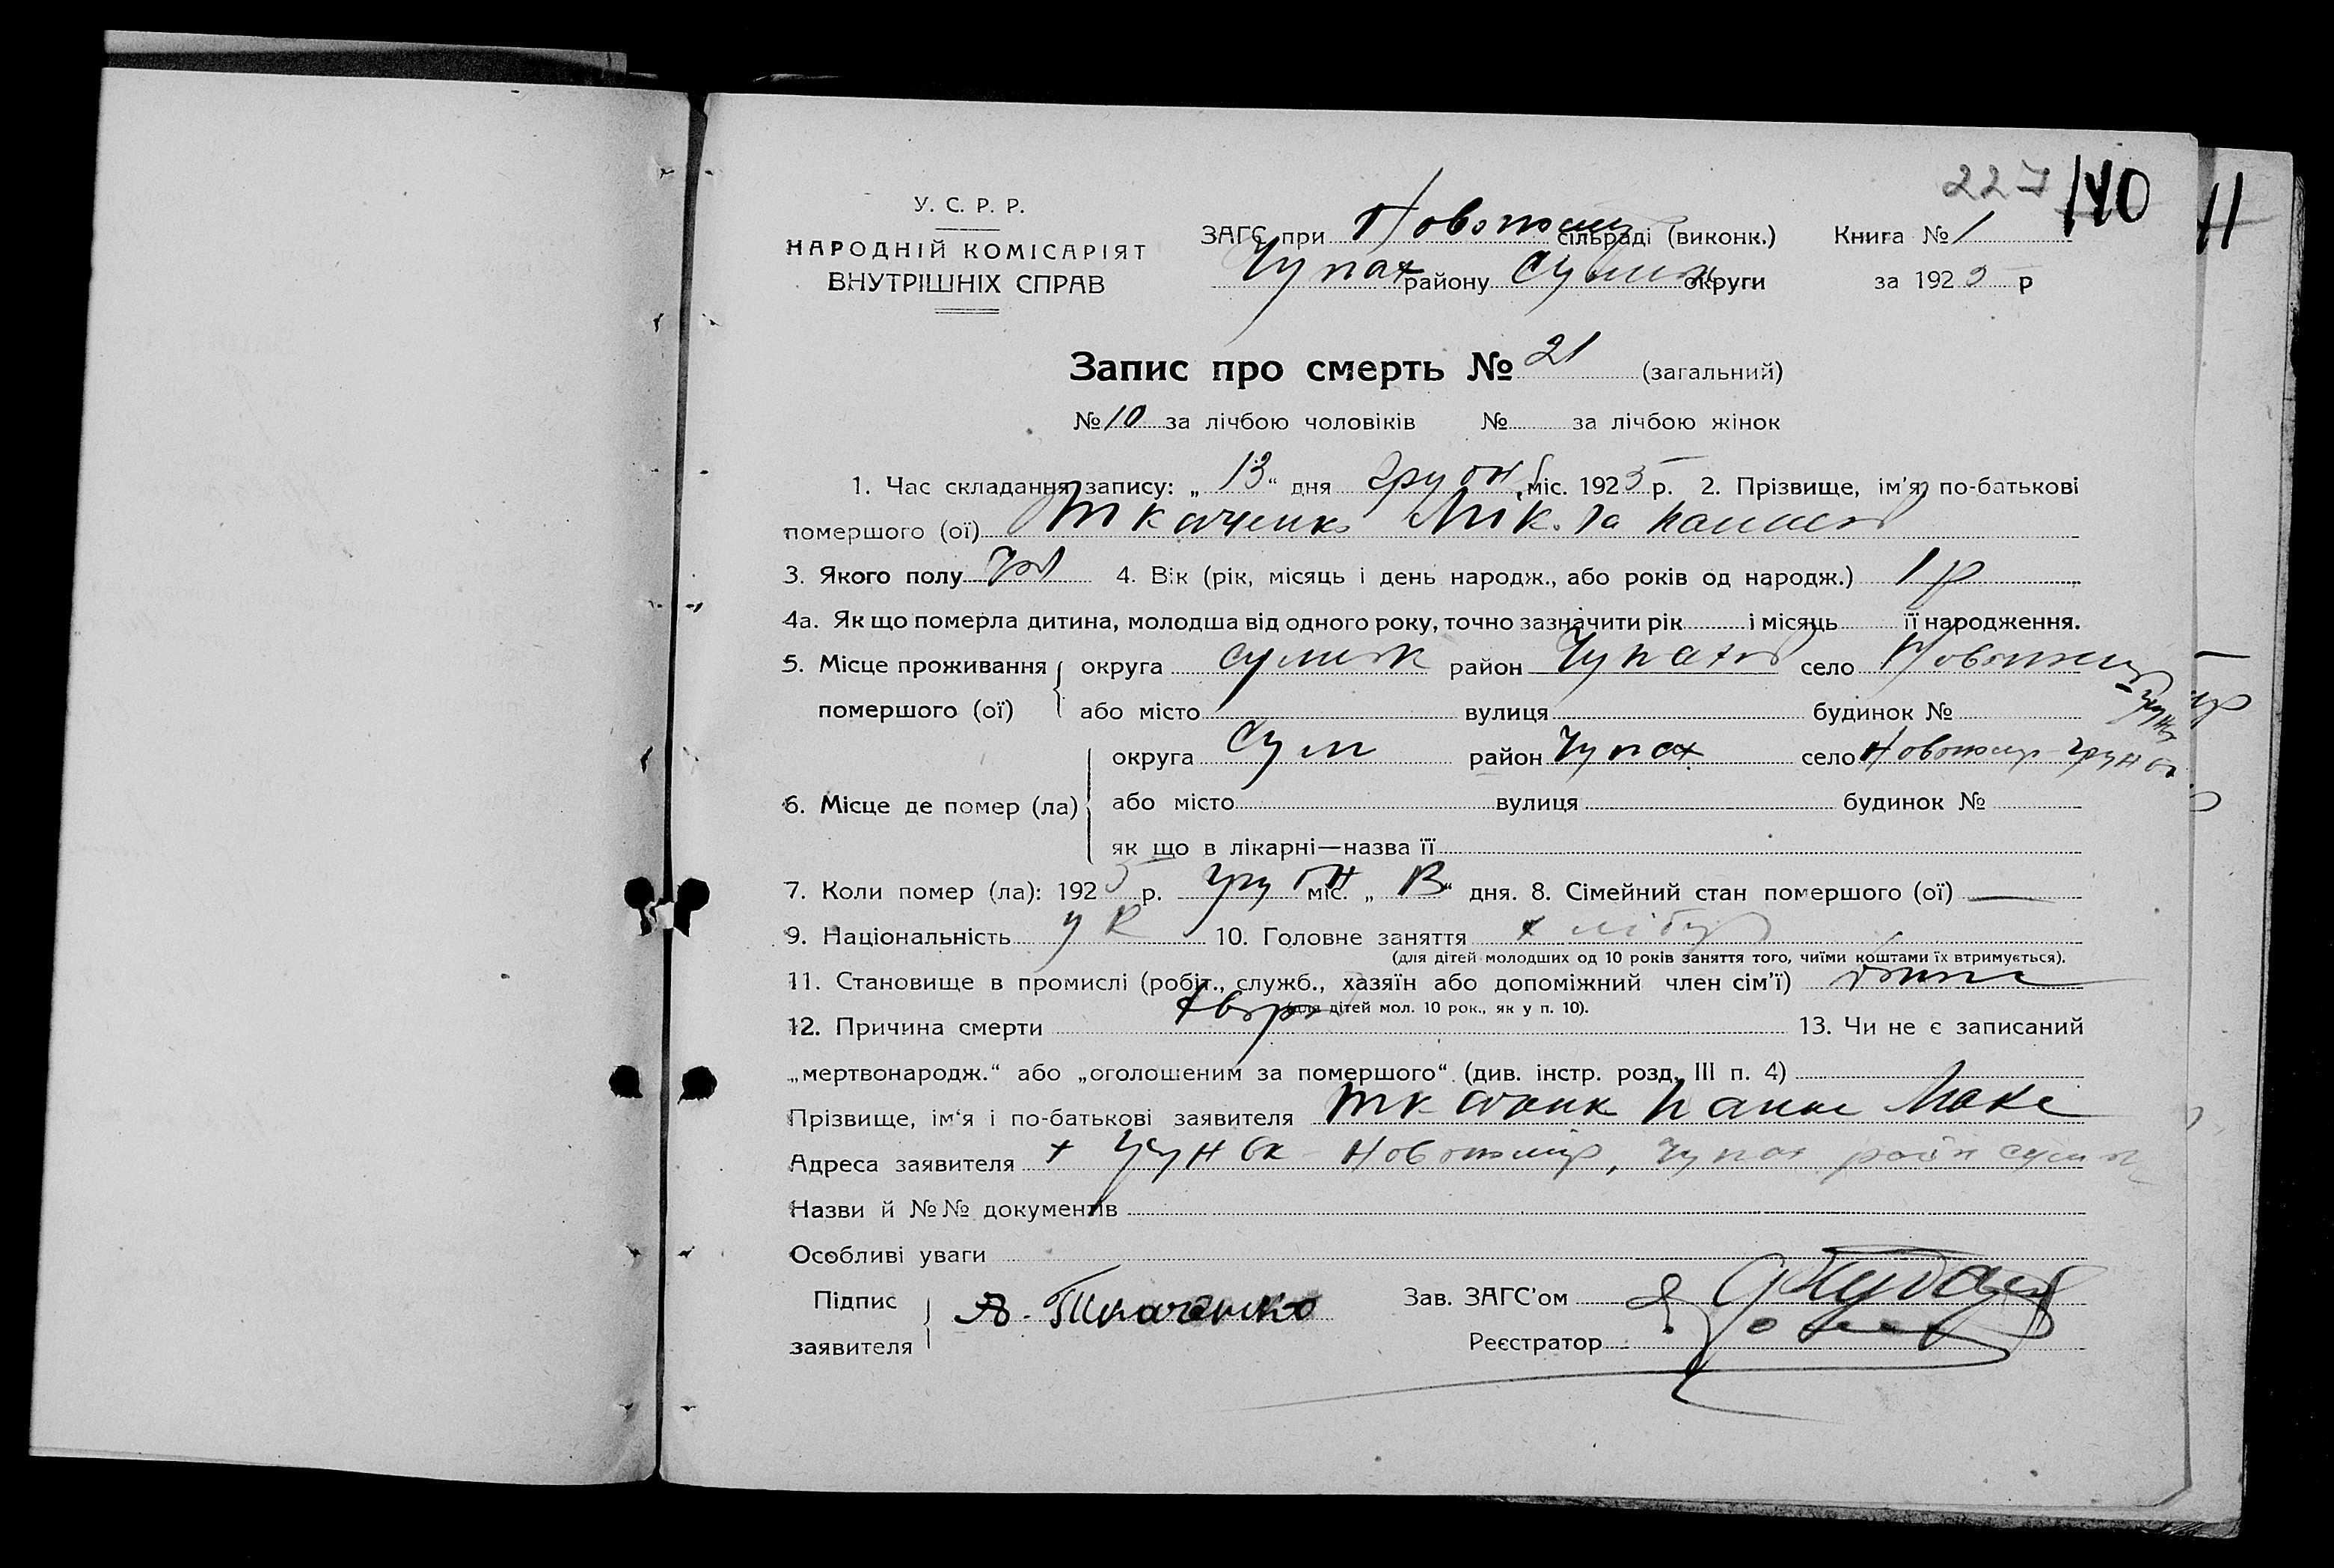 227 140 11
У. С. Р. Р.
НАРОДНІЙ КОМІСАРІЯТ
ВНУТРІШНІХ СПРАВ
ЗАГС при сільраді (виконк.) Книга № 1
Чупах району Сумск округи за 1925 р
Запис про смерть № 21 (загальний)
№ 10 за лічбою чоловіків № за лічбою жінок
1. Час складання запису: „ 13 “ дня грудн міс. 1925 р. 2. Прізвище, ім'я, по-батькові
помершого (ої) Ткаченко
3. Якого полу чол 4. Вік (рік, місяць і день народж., або років од народж.) 1 р
4а. Як що померла дитина, молодша від одного року, точно зазначити рік і місяць її народження.
5. Місце проживання округа Сумск район село
помершого (ої) або місто вулиця будинок №
округа Сум район Чупах село
6. Місце де помер (ла) або місто вулиця будинок №
як що в лікарні—назва її
7. Коли помер (ла): 1925 р. грудн міс. „ 13 “ дня. 8. Сімейний стан помершого (ої) —
9. Національність ук 10. Головне заняття хлібор
(для дітей молодших од 10 років заняття того, чиїми коштами їх втримується).
11. Становище в промислі (робіт., служб., хазяїн або допоміжний член сім'ї)
(для дітей мол. 10 рок., як у п. 10).
12. Причина смерти 13. Чи не є записаний
„мертвонародж.“ або „оголошеним за помершого“ (див. інстр. розд. III п. 4)
Прізвище, ім'я і по-батькові заявителя
Адреса заявителя х Грунь Чупах район Сумск
Назви й №№ документів
Особливі уваги
Підпис
заявителя Ткаченко
Зав. ЗАГС'ом
Реєстратор